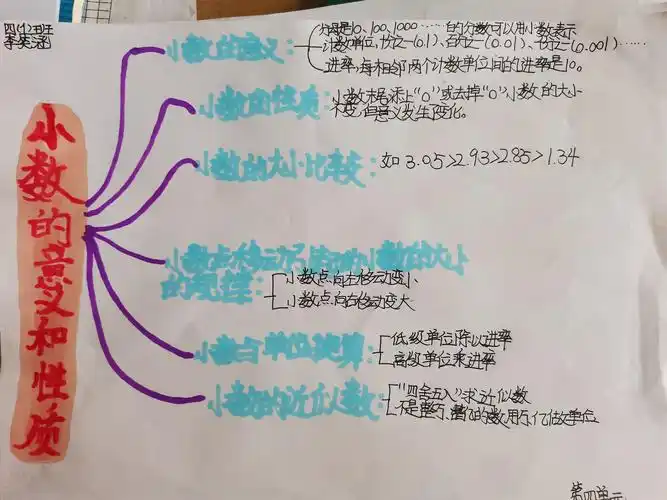 四(2)班
李英涵
小数的意义和性质
小数的意义：
分母是10、100、1000……的分数可以用小数表示
计数单位,十分之一(0.1)、百分之一(0.01)、千分之一(0.001)……
进率:每相邻两个计数单位间的进率是10。
小数的性质：
小数末尾添上"0"或去掉"0",小数的大小
不变,但意义发生变化。
小数的大小比较：如 3.05>2.93>2.85>1.34
小数点移动引起小数的大小
的规律：
小数点向左移动变小
小数点向右移动变大
小数与单位换算：
低级单位除以进率
高级单位乘进率
小数的近似数：
"四舍五入"求近似数
不是整万、整亿的数用万、亿做单位
第四单元